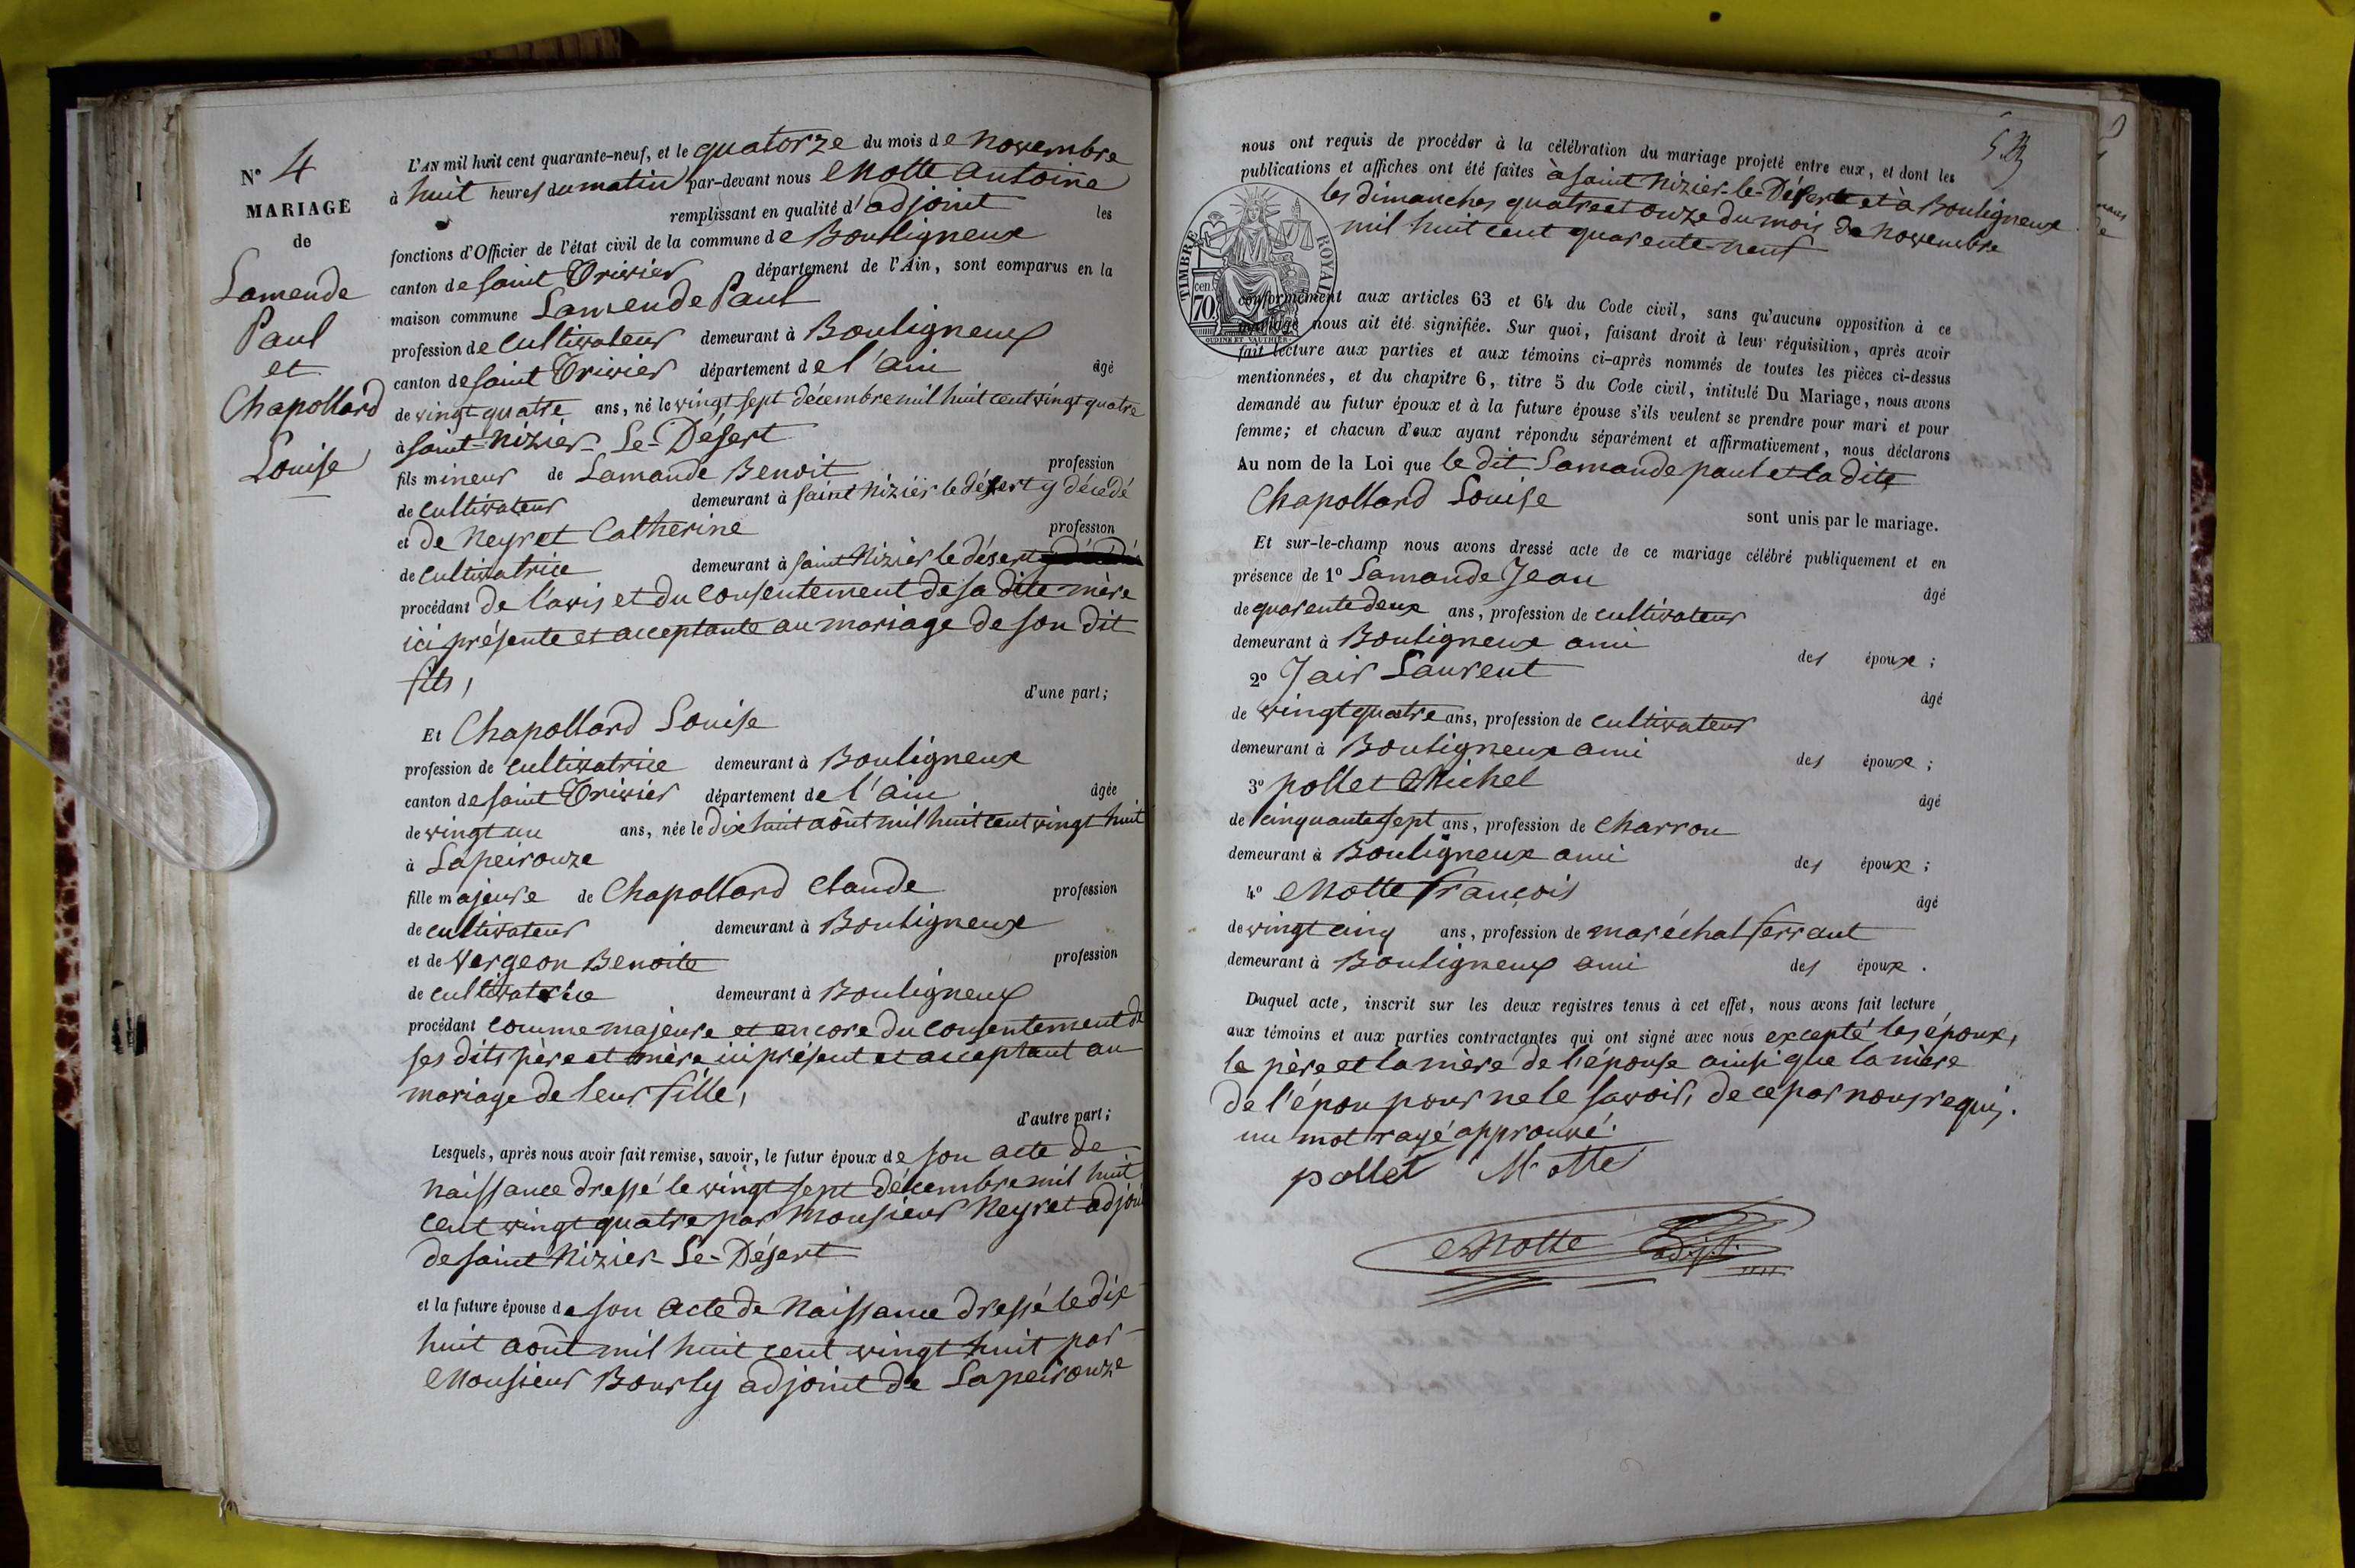 N° 4
MARIAGE
de
Lamende
Paul
et
Chapollard
Louise
L'AN mil huit cent quarante-neuf, et le quatorze du mois de Novembre
à huit heures du matin par-devant nous Motte Antoine
remplissant en qualité d'adjoint les
fonctions d'Officier de l'état civil de la commune de Bouligneux
canton de saint Trivier département de l'Ain, sont comparus en la
maison commune Lamende Paul
profession de Cultivateur demeurant à Bouligneux
canton de saint Trivier département de l'ain âgé
de vingt quatre ans, né le vingt sept décembre mil huit cent vingt quatre
à saint-Nizier-Le-Désert
fils mineur de Lamande Benoit profession
de cultivateur demeurant à saint Nizier le désert y décédé
et de Neyret Catherine profession
de cultivatrice demeurant à saint Nizier le désert
procédant de l'avis et du consentement de sa dite mère
ici présente et acceptante au mariage de son dit
fils, d'une part;
Et Chapollard Louise
profession de cultivatrice demeurant à Bouligneux
canton de saint Trivier département de l'ain âgée
de vingt un ans, née le dix huit août mil huit cent vingt huit
à Lapeirouze
fille majeure de Chapollard Claude profession
de cultivateur demeurant à Bouligneux
et de Vergeon Benoite profession
de cultivatrice demeurant à Bouligneux
procédant comme majeure et encore du consentement de
ses dits père et mère ici présent et acceptant au
mariage de leur fille,
d'autre part;
Lesquels, après nous avoir fait remise, savoir, le futur époux de son acte de
naissance dressé le vingt sept décembre mil huit
cent vingt quatre par Monsieur Neyret adjoint
de saint Nizier-Le-Désert
et la future épouse de son acte de Naissance dressé le dix
huit août mil huit cent vingt huit par
Monsieur Bourly adjoint de Lapeirouze
nous ont requis de procéder à la célébration du mariage projeté entre eux, et dont les
publications et affiches ont été faites à saint Nizier-le-Désert et à Bouligneux
les dimanches quatre et onze du mois de Novembre
mil huit cent quarente-neuf
TIMBRE ROYAL
cen. 70
OUDINE ET VAUTHIER
conformément aux articles 63 et 64 du Code civil, sans qu'aucune opposition à ce
mariage nous ait été signifiée. Sur quoi, faisant droit à leur réquisition, après avoir
fait lecture aux parties et aux témoins ci-après nommés de toutes les pièces ci-dessus
mentionnées, et du chapitre 6, titre 5 du Code civil, intitulé Du Mariage, nous avons
demandé au futur époux et à la future épouse s'ils veulent se prendre pour mari et pour
femme; et chacun d'eux ayant répondu séparément et affirmativement, nous déclarons
Au nom de la Loi que le dit Lamande paul et la dite
Chapollard Louise
sont unis par le mariage.
Et sur-le-champ nous avons dressé acte de ce mariage célébré publiquement et en
présence de 1° Lamande Jean âgé
de quarente deux ans, profession de cultivateur
demeurant à Bouligneux ami des époux;
2° Jair Laurent âgé
de vingt quatre ans, profession de cultivateur
demeurant à Bouligneux ami des époux;
3° pollet Michel âgé
de cinquante sept ans, profession de Charron
demeurant à Bouligneux ami des époux;
4° Motte françois âgé
de vingt cinq ans, profession de maréchal ferrant
demeurant à Bouligneux ami des époux.
Duquel acte, inscrit sur les deux registres tenus à cet effet, nous avons fait lecture
aux témoins et aux parties contractantes qui ont signé avec nous excepté les époux,
le père et la mère de l'épouse ainsi que la mère
de l'épou pour ne le savoir, de ce par nous requis.
un mot rayé approuvé.
pollet Motte
Motte adjt